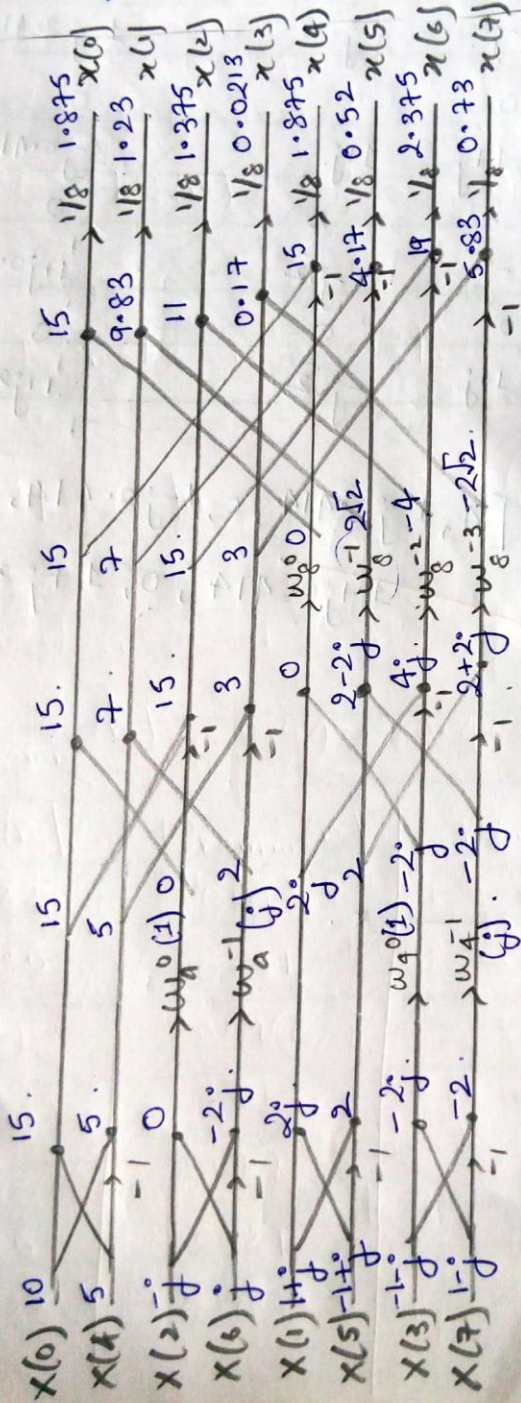 X(0) 10 15. 15 15. 15 15 1/8 1.875 x(0)
X(4) 5 -1 5. 5 7. 7 9.83 1/8 1.23 x(1)
X(2) -j 0 W4^0 (1) 0 -1 15 15. 11 1/8 1.375 x(2)
X(6) j -1 -2j. W4^-1 (j) 2 -1 3 3 0.17 1/8 0.0213 x(3)
X(1) 1+j 2j 2j 0 W8^0 0 -1 15 1/8 1.875 x(4)
X(5) -1+j -1 2 2 2-2j W8^-1 2√2 -1 4.17 1/8 0.52 x(5)
X(3) -1-j -2j. W4^0 (1) -2j -1 4j. W8^-2 -4 -1 19 1/8 2.375 x(6)
X(7) 1-j -1 -2. W4^-1 (j). -2j -1. 2+2j W8^-3 -2√2. -1 5.83 1/8 0.73 x(7)